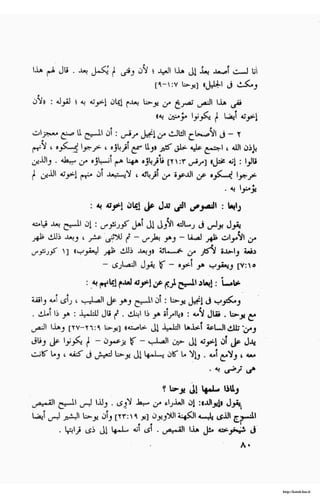 أنا لست أصعد بعد إلى هذا العيد ؛ لأن وقتى لم يكمل بعد . قال لهم هذا
ومكث فى الجليل» [يوحنا ٧:١-٩]
ففى هذا النص تصريح من يوحنا بعدم إيمان إخوته به ؛ لقوله : «لأن
إخوته أيضا لم يكونوا مؤمنين به»
٢ - فى الأصحاح الثالث من إنجيل مرقس : أن المسيح لما صنع معجزات
بإذن الله ، اجتمع عليه خلق كثير «ولما سمع أقرباؤه وإخوته
قالوا : إنه مختل» [مرقس ٣:٢١]
به يؤمنوا لم
رابعا : النصوص التى تدل على إيمان إخوته به :
يقول بولس فى رسالته الأولى إلى أهل كورنثوس : إن المسيح بعد قيامته
من الأموات ظهر لصفا - وهو بطرس - ثم للاثنى عشر ، وبعد ذلك ظهر
دفعة واحدة لأكثر من خمسمائة «وبعد ذلك ظهر ليعقوب» [١ كورنثوس
١٥:٧] ويعقوب هو أخوه - كما يقول النصارى -
خامسا : إبعاد المسيح مريم عن إخوته لعدم إيمانهم به :
ومكتوب فى إنجيل يوحنا : أن المسيح وهو على الصليب ، رأى أمه واقفة
مع يوحنا . فقال لأمه : «يا امرأة . هو ذا ابنك . ثم قال للتلميذ : هو ذا أمك .
ومن تلك الساعة أخذها التلميذ إلى خاصته» [يوحنا ١٩:٢٦-٢٧] هذا النص
يدل على أن إخوته إلى حين الصلب - كما يزعمون - لم يكونوا على وفاق
معه ، ولا مع أمه . وإلا لما كان سلمها إلى يوحنا ليعتنى بها فى كنفه ، ولما كانت
هى ترضى به .
ولماذا سلمها إلى يوحنا ؟
يقولون : إن العذراء من سبط لاوى . ولبس المسيح القميص
المنسوج الذى يلبسه الكهنة اللاويون [يو ١٩:٢٣] وأن يوحنا المعمدان لبس أيضا
فى شيخوخته مثل هذا القميص . أى أنه سلمها إلى ذى قرابتها .
٨٠
http://kotob.has.it